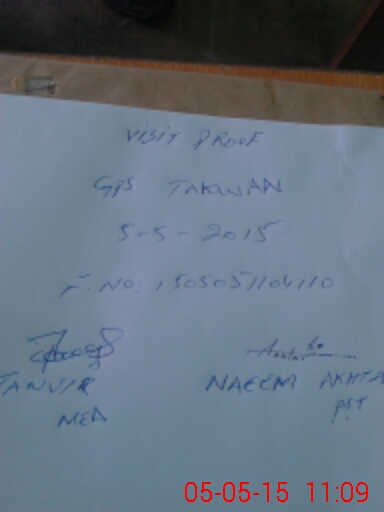 VISIT PROOF
GPS TAKWAN
5-5-2015
F.NO: 1505051104110
TANVIR
MEA
NAEEM AKHTA
PST
05-05-15 11:09